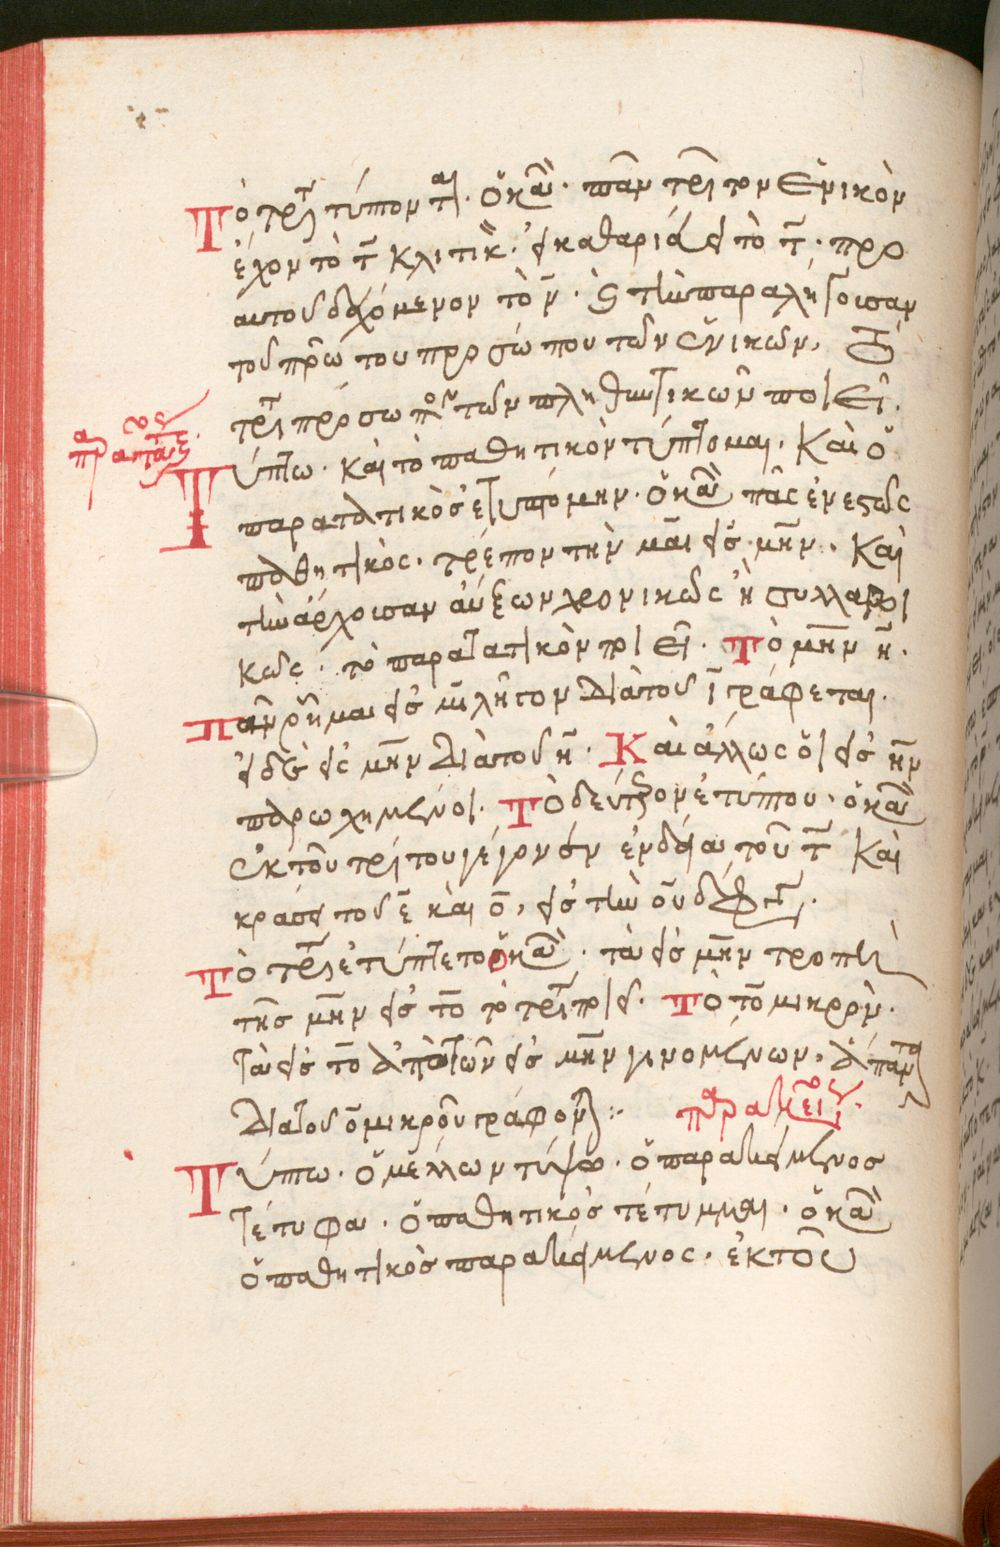 Τὸ τρί τύπον τ. ὁ κα. πᾶν τρίτον ἑνικὸν
ἔχον τὸ τ κλιτικ. ἐκ καθαριά εἰ τὸ τ. προ
αυτοῦ δεχόμενον τὸ ν. τὴν παραλήγουσαν
τοῦ πρώτου προσώπου τῶν ἑνικῶν,
τρί προσώπου τῶν πληθυντικῶν ποιεῖ.
Τύπτω. καὶ τὸ παθητικὸν τύπτομαι. Καὶ ὁ
παρατατικὸς ἐτυπτόμην. ὁ κα πᾶς ἐνεστὼς
παθητικός. τρέπον τὴν μαι εἰς μην. Καὶ
τὴν ἄρχουσαν αὔξων χρονικῶς ἢ συλλαβι
κῶς. τὸ παρατατικὸν ποιεῖ. Τὸ μην η.
Πᾶν ῥῆμα εἰς μι λῆγον διὰ τοῦ ι γράφεται.
εἰ δὲ εἰς μην διὰ τοῦ η. Καὶ ἄλλως οἱ εἰς ην
παρωχημένοι. Τὸ δεύτερον ἐτύπου. ὁ κα
ἐκ τοῦ τρίτου γέγονεν ἐνδείᾳ τοῦ τ καὶ
κράσει τοῦ ε καὶ ο, εἰς τὴν ου δίφθ.
Τὸ τρί ἐτύπτετο ὁ κα. τὰ εἰς μην τροπῇ
τῆς μην εἰς το τὸ τρί ποιεῖ. Τὸ το μικρὸν.
τὰ εἰς το ἀπὸ τῶν εἰς μην γινομένων, ἅπαντα
διὰ τοῦ ο μικροῦ γράφον:· παρακεί.
Τύπτω. ὁ μέλλων τύψω. ὁ παρακείμενος
τέτυφα. ὁ παθητικὸς τέτυμμαι. ὁ κα
ὁ παθητικὸς παρακείμενος. ἐκ τοῦ